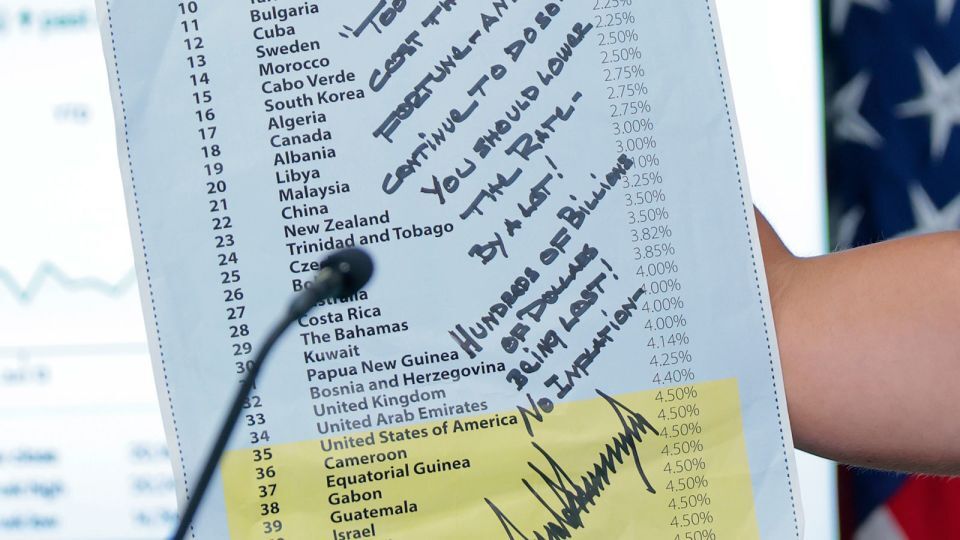 10
11 Bulgaria
12 Cuba
13 Sweden
14 Morocco
15 Cabo Verde
16 South Korea
17 Algeria
18 Canada
19 Albania
20 Libya
21 Malaysia
22 China
23 New Zealand
24 Trinidad and Tobago
25
26
27
28 Costa Rica
29 The Bahamas
30 Kuwait
Papua New Guinea
32 Bosnia and Herzegovina
33 United Kingdom
34 United Arab Emirates
35 United States of America
36 Cameroon
37 Equatorial Guinea
38 Gabon
39 Guatemala
Israel
"TOO
COST TH
FORTUNE - AND
CONTINUE TO DO SO
YOU SHOULD LOWER
THE RATE -
BY A LOT!
HUNDREDS OF BILLIONS
OF DOLLARS
BEING LOST!
NO INFLATION -
2.25%
2.25%
2.50%
2.50%
2.75%
2.75%
2.75%
3.00%
3.00%
10%
3.25%
3.50%
3.50%
3.82%
3.85%
4.00%
4.00%
4.00%
4.00%
4.14%
4.25%
4.40%
4.50%
4.50%
4.50%
4.50%
4.50%
4.50%
4.50%
4.50%
4.50%